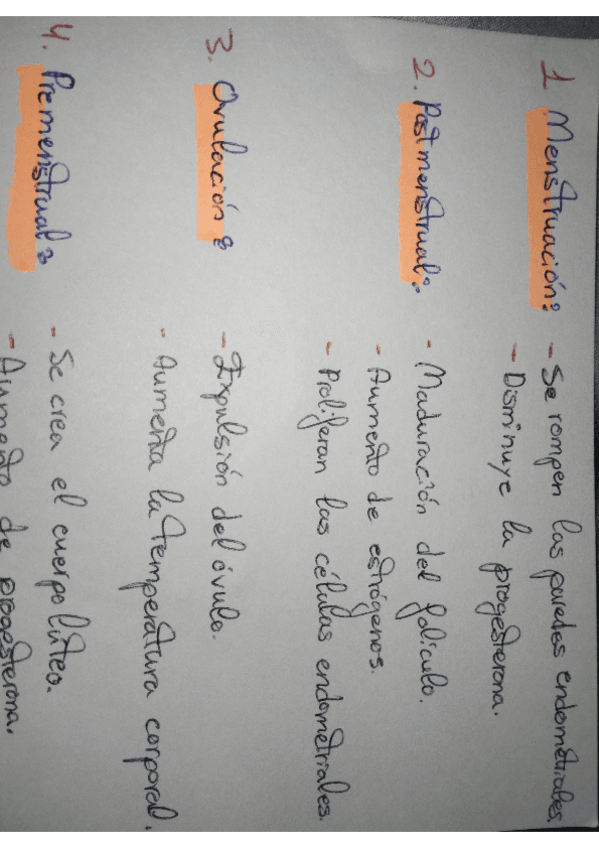 1 Menstruación: - Se rompen las paredes endometriales.
- Disminuye la progesterona.
2. Postmenstrual: - Maduración del folículo.
- Aumento de estrógenos.
- Proliferan las células endometriales.
3. Ovulación: - Expulsión del óvulo.
- Aumenta la temperatura corporal.
4. Premenstrual: - Se crea el cuerpo lúteo.
- Aumento de progesterona.